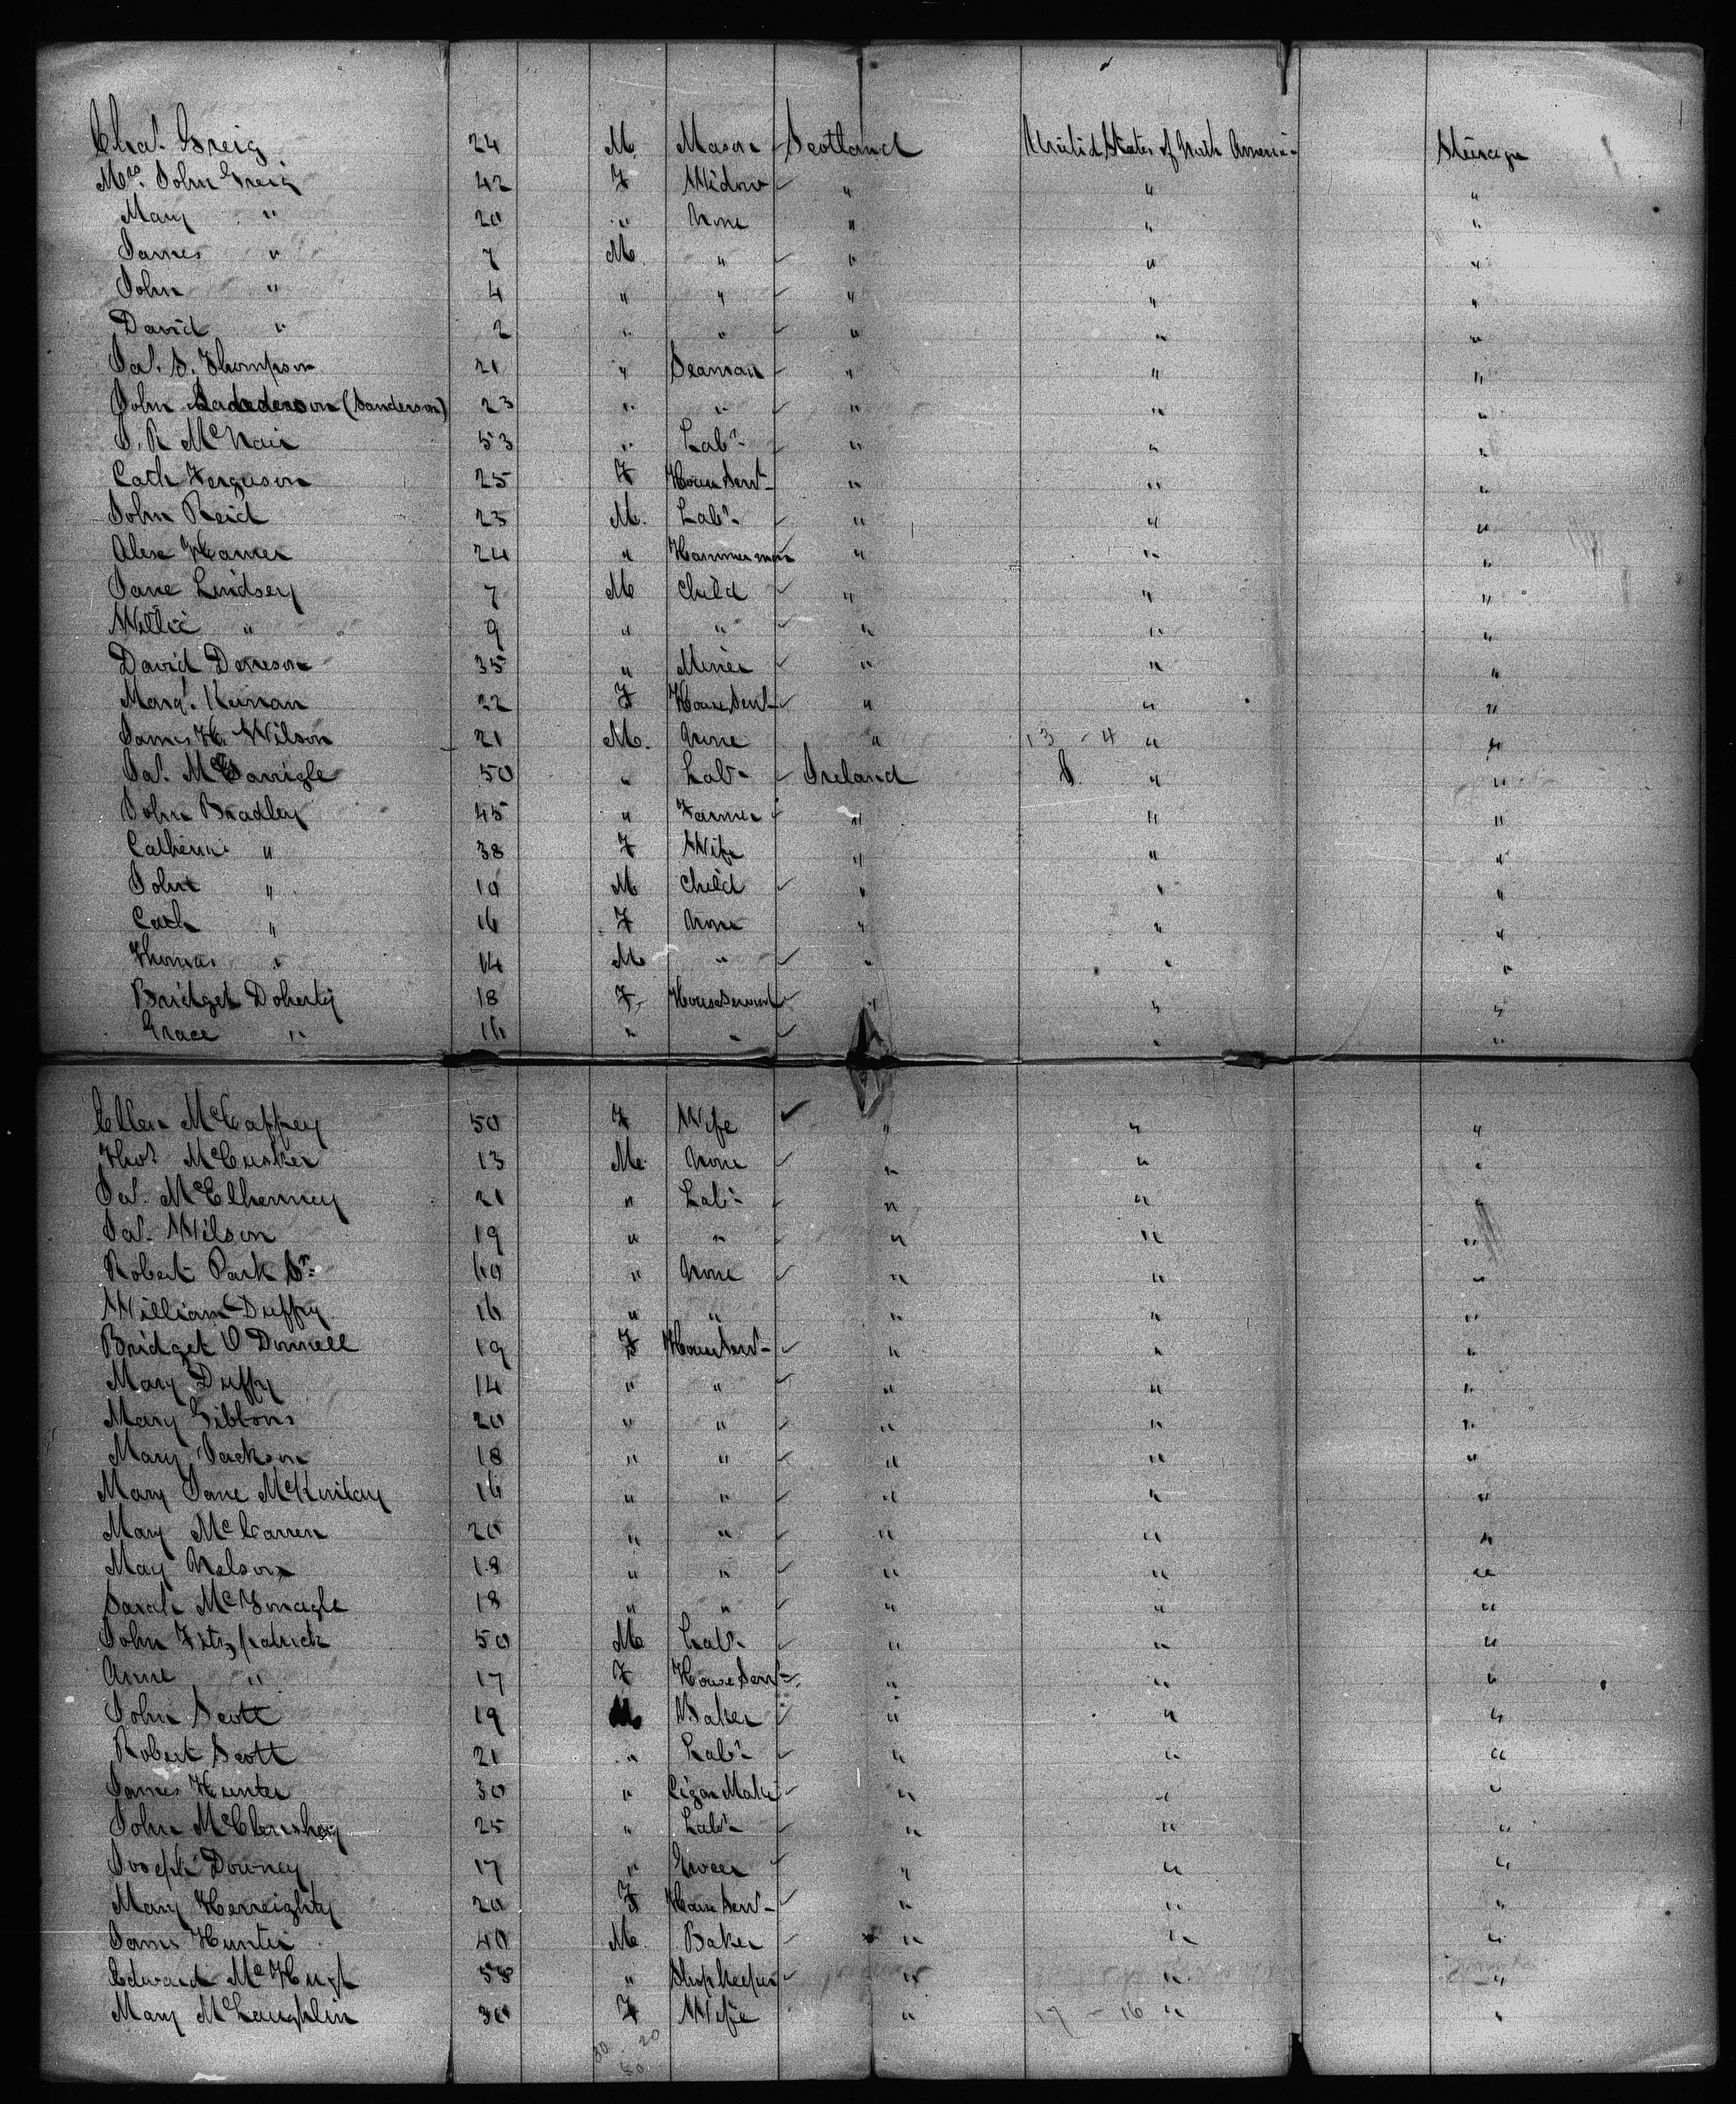 Chas. Greig 24 M. Mason Scotland United States of North America Steerage
Mrs. John Greig 42 F Widow " " "
Mary " 20 " None " " "
James " 7 M. " " " "
John " 4 " " " " "
David " 2 " " " " "
Jas. S. Thompson 21 " Seaman " " "
John (Sanderson) 23 " " " " "
J. R McNair 53 " Labr " " "
Cath Ferguson 25 F House Servt " " "
John Reid 23 M. Labr " " "
Alex Hamer 24 " Hammerman " " "
Jane Lindsey 7 M Child " " "
Willie " 9 " " " " "
David Deneson 35 " Miner " " "
Margt. Keenan 22 F House Servt " " "
James H. Wilson 21 M. None " 13 - 4 " "
Jas. McGonigle 50 " Labr Ireland " "
John Bradley 45 " Farmer " " "
Catherine " 38 F Wife " " "
John " 10 M Child " " "
Cath " 16 F None " " "
Thomas " 14 M " " " "
Bridget Doherty 18 F. House Servant " " "
Grace " 16 " " " "
Ellen McCaffrey 50 F Wife " " "
Thos McCusker 13 M. None " " "
Jas. McElhenney 21 " Labr " " "
Jas. Wilson 19 " " " " "
Robert Park Sr. 60 " None " " "
William Duffy 16 " " " " "
Bridget O Donnell 19 F House Servt " " "
Mary Duffy 14 " " " " "
Mary Gibbons 20 " " " " "
Mary Jackson 18 " " " " "
Mary Jane McKinlay 16 " " " " "
Mary McCarren 20 " " " " "
May Nelson 18 " " " " "
Sarah McGonagle 18 " " " " "
John Fitzpatrick 50 M Labr " " "
Anne " 17 F House Servt " " "
John Scott 19 M Baker " " "
Robert Scott 21 " Labr " " "
James Hunter 30 " Cigar Maker " " "
John McClenshey 25 " Labr " " "
Joseph Downey 17 " Grocer " " "
Mary Herreighty 20 F House Servt " " "
James Hunter 40 M. Baker " " "
Edward McHugh 58 " Shopkeeper " " "
Mary McLaughlin 30 F Wife " 17 - 16 " "
30 20
50